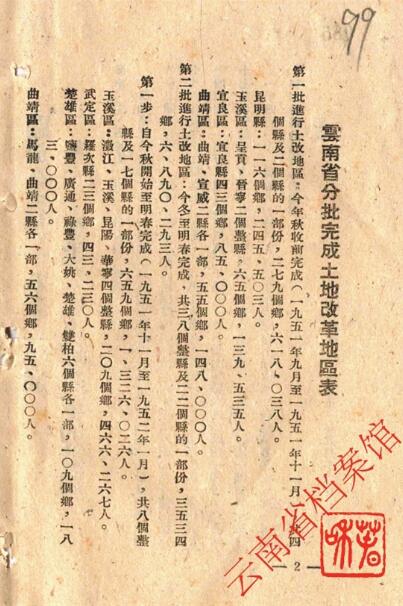 99
雲南省分批完成土地改革地區表
第一批進行土改地區:今年秋收前完成(一九五一年九月至一九五一年十一月)共四
個縣及二個縣的一部份,二七九個鄉,六一八、〇三八人。
昆明縣:一一六個鄉,二四五、五〇三人。
玉溪區:呈貢、晉寧二個整縣,六五個鄉,一三九、五三五人。
宜良區:宜良縣四三個鄉,八五、〇〇〇人。
曲靖區:曲靖、宣威二縣各一部,五五個鄉,一四八、〇〇〇人。
第二批進行土改地區:今冬至明春完成,共三八個整縣及二二個縣的一部份,三五三四
鄉,六、八九〇、二九三人。
第一步:自今秋開始至明春完成(一九五一年十一月至一九五二年一月),共八個整
縣及一七個縣的一部份,六五九個鄉,一、三二六、〇二六人。
玉溪區:澂江、玉溪、昆陽、華寧四個整縣,二〇九個鄉,四六六、二六七人。
武定區:羅次縣二三個鄉,四三、二三〇人。
楚雄區:鹽豐、廣通、祿豐、大姚、楚雄、雙柏六個縣各一部,一〇九個鄉,一八
三、〇〇〇人。
曲靖區:馬龍、曲靖二縣各一部,五六個鄉,九五、〇〇〇人。
— 2 —
云南省档案馆